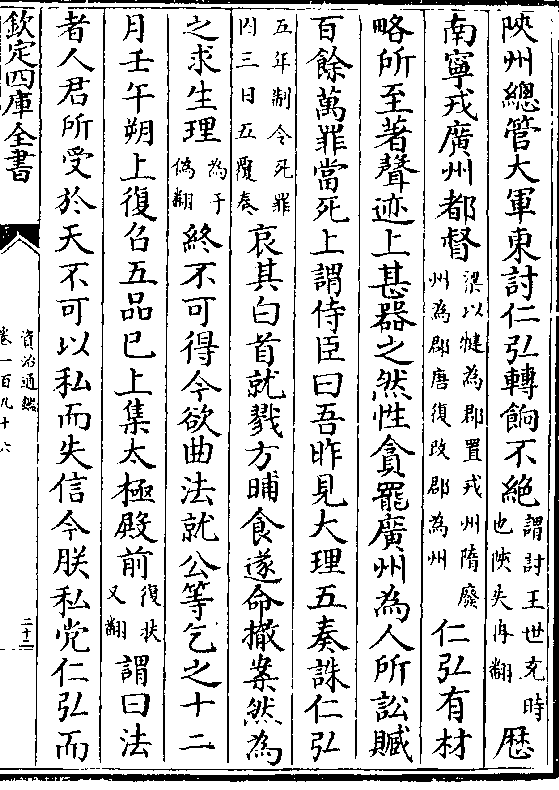 陜州總管大軍東討仁弘轉餉不絶謂討王世充時也陜失冉翻歷
南寧戎廣州都督梁以犍為郡置戎州隋廢州為郡唐復改郡為州仁弘有材
略所至著聲迹上甚器之然性貪罷廣州為人所訟贓
百餘萬罪當死上謂侍臣曰吾昨見大理五奏誅仁弘
五年制令死罪囚三日五覆奏哀其白首就戮方晡食遂命撤案然為
之求生理為于偽翻終不可得今欲曲法就公等乞之十二
月壬午朔上復召五品已上集太極殿前復扶又翻謂曰法
者人君所受於天不可以私而失信今朕私党仁弘而
欽定四庫全書
資治通鑑
卷一百九十六